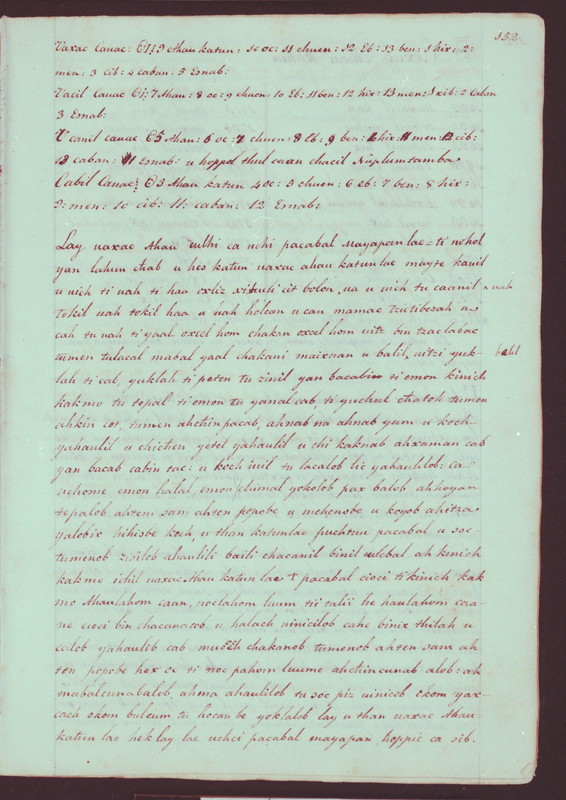 152.
Vaxac Cauac: 1:9 Ahau katun: 10 oc: 11 chuen: 12 Eb: 13 ben: 1 hix: 2:
men: 3 cib: 4 caban: 5 Esnab:
Vacil Cauac 7 Ahau: 8 oc: 9 chuen: 10 Eb: 11 ben: 12 hix: 13 men: 1 xib: 2 Caban
3 Esnab:
Vcanil cauac 5 Ahau: 6 oc: 7 chuen: 8 Eb: 9 ben: hix: 11 men: 12 cib:
13 caban: 1 Esnab: u hoppol thul caan chacil
Cabil Cauac: 3 Ahau katun 4 oc: 5 chuen: 6 eb: 7 ben: 8 hix:
9: men: 10 cib: 11: caban: 12 Esnab:
Lay uaxac Ahau culhi ca uchi pacabal Mayapan lae = ti nohol
yan lahun chab u hes katun uaxac ahau katun lae mayze kauil
u uich ti uah ti haa oxliz cit bolon ua u uich tu caanil u uah
tokil uah tokil haa u uah holcan u can mamac tzutibesah u
cah tu uah ti yaal oxcel hom chakan oxcel hom uitz bin tzaclabac
tumen tulacal mabal yaal chakani maixuan u balil, uitzi yuk- balil
lah ti cab, yuklah ti peten tu zinil yan bacabin ti emon kinich
kakmo tu tepal ti emon tu yanal cab, ti yuchul chatok tumen
ahkin cot, tumen ahchin pacab, ahnab na ahnab yum u koch
yahaulil u chichen yetel yahaulil u chi kaknab ahxaman cab
yan bacab cabin tac: u koch iuil tu lacalob lic yahaulilob: ca
uchome emon halal, emon chimal yokolob pax balob ahkoyan
tepalob ahten sam ahten popobe u mehensbe u koyob ahitza
yalobix hihisbe koch, u than katun lae puchtun pacabal u soc
tumenob zizilob ahaulili baili chacanil binil ulebal ah kinich
kakmo ichil uaxac Ahau katun lae + pacabal cioci ti kinich kak
mo Ahaulahom caan, noclahom luum tii talii he haulahom caa-
ne cioci bin chacuncob u halach uinicilob cahe binix thilah u
calob yahaulib cab chakanob tumenob ahten sam ah
ten popobe hex oc ti noc pahom luume ahchincunab alob: ah
mabalcunabalob, ahma ahaulilob tu soc piz uiniceb okom yax-
cach okom buleum tu horanbe yoklalob lay u than uaxac Ahau
katun lae heklay lae uchci pacabal mayapan hoppic ca sib-